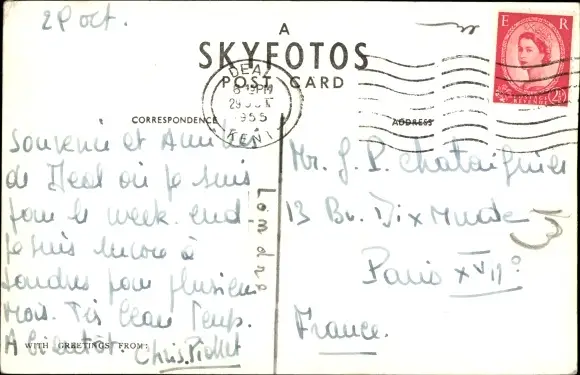 29 Oct.
A
SKYFOTOS
POST CARD
E R
POSTAGE
REVENUE
2½
DEAL
6-PM
29 OCT
1955
KENT
CORRESPONDENCE
ADDRESS
Souvenir et Amitiés
de Deal où je suis
pour le week-end
je suis encore à
Londres pour plusieurs
mois. Très beau Temps.
A bientôt. Chris.
WITH GREETINGS FROM:
Londre
Mr. J. P. Chataignier
13 Bv.
Paris XVIIº
France.